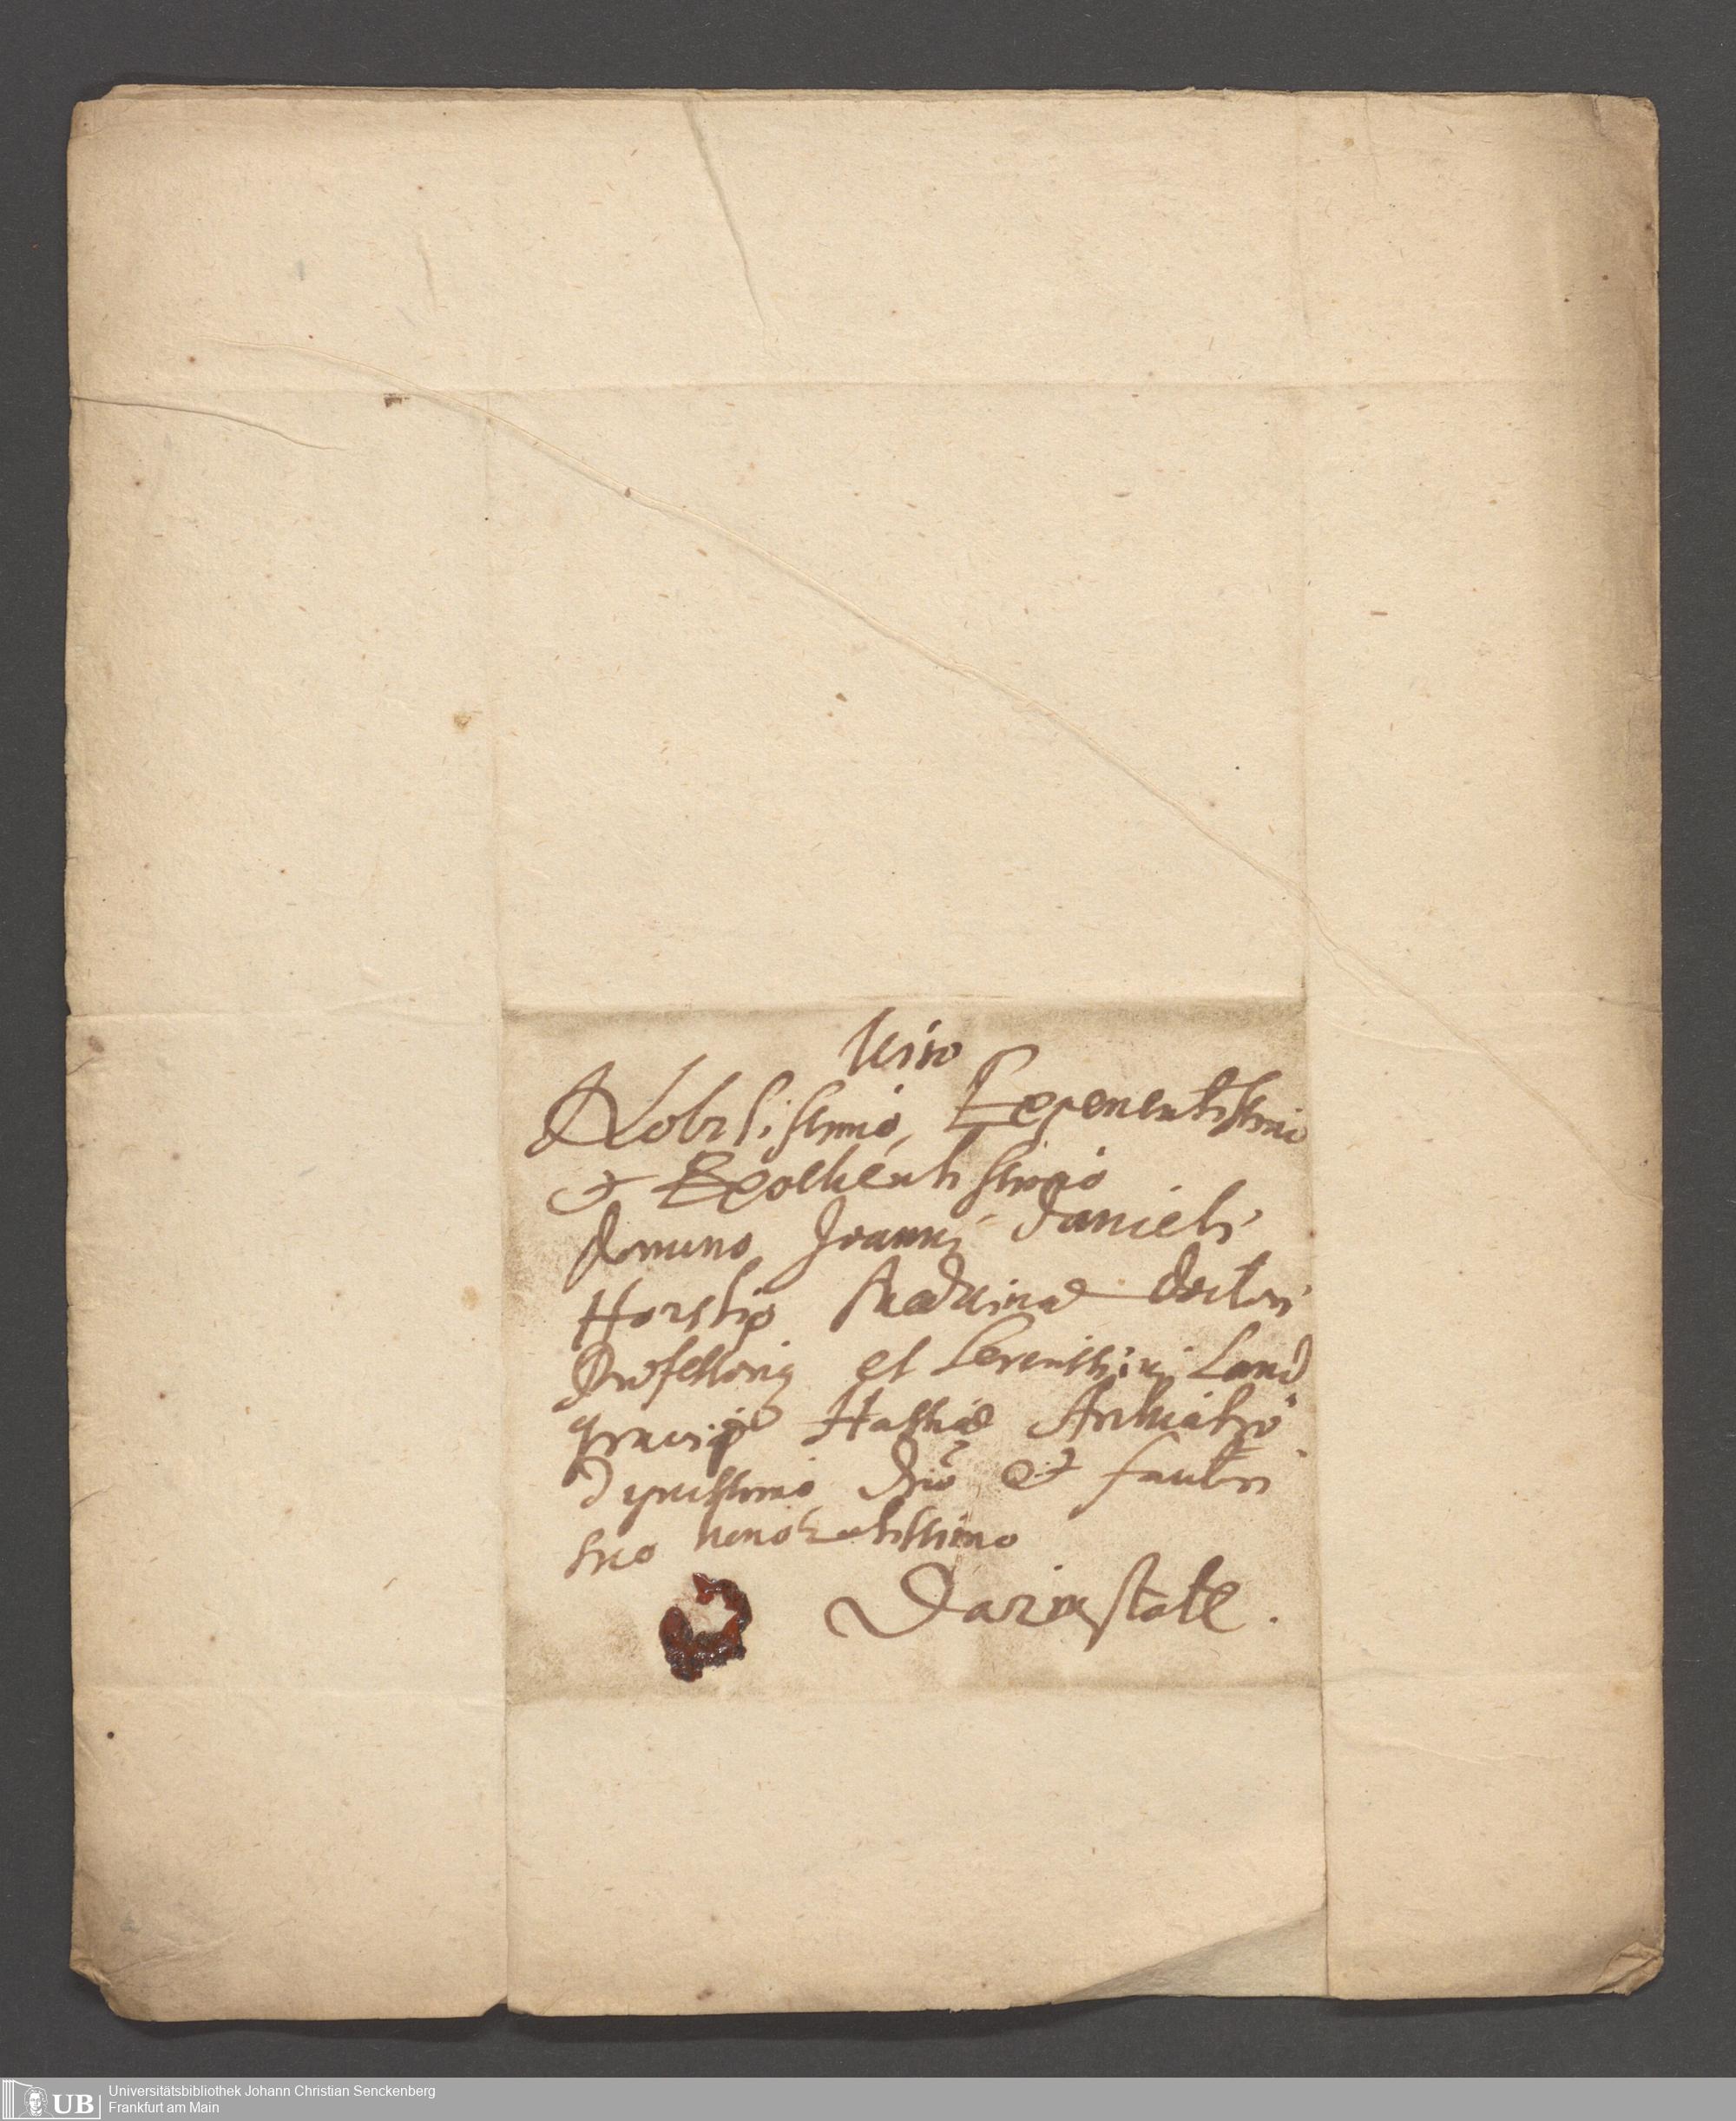 Viro
Nobilissimo, Experientissimo
& Excellentissimo
Domino Joanni Danieli
Horstio Medicinae Doctori
Professori et Serenissimi Land
gravij Hassiae Archiatro
Dignissimo Dno & fautori
suo honoratissimo
Darmstatt.
Universitätsbibliothek Johann Christian Senckenberg
UB Frankfurt am Main